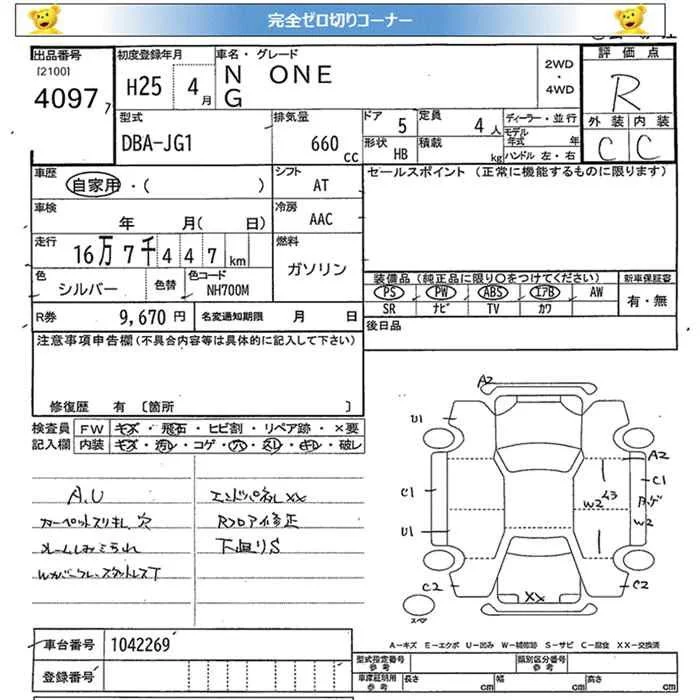 完全ゼロ切りコーナー
出品番号
[2100]
4097
7
初度登録年月
H25 4月
車名・グレード
N ONE
G
2WD
・
4WD
評価点
R
外装 内装
C C
型式
DBA-JG1
排気量
660 cc
ドア 5
定員 4人
形状 HB
積載 kg
ディーラー・並行
モデル年式 年
ハンドル 左・右
車歴
自家用・( )
シフト
AT
セールスポイント (正常に機能するものに限ります)
車検
年 月( 日)
冷房
AAC
走行
16万7千447km
燃料
ガソリン
色
シルバー
色替
色コード
NH700M
装備品 (純正品に限り〇をつけてください)
新車保証書
PS PW ABS エアB AW
SR ナビ TV カワ
有・無
R券 9,670円
名変通知期限 月 日
後日品
注意事項申告欄(不具合内容等は具体的に記入して下さい)
修復歴 有 [箇所 ]
検査員記入欄
FW キズ・飛石・ヒビ割・リペア跡・×要
内装 キズ・汚レ・コゲ・穴・スレ・キレ・破レ
A.U
カーペットスリキレ 穴
エンドパネルXX
Rフロア修正
下廻りS
A2
U1
C1
U1
C2
A2
C1
W2
W2
C2
XX
スペア
A-キズ E-エクボ U-凹み W-補修跡 S-サビ C-腐食 XX-交換済
車台番号 1042269
登録番号
型式指定番号 参考
類別区分番号 参考
車庫証明用 参考
長さ cm
幅 cm
高さ cm